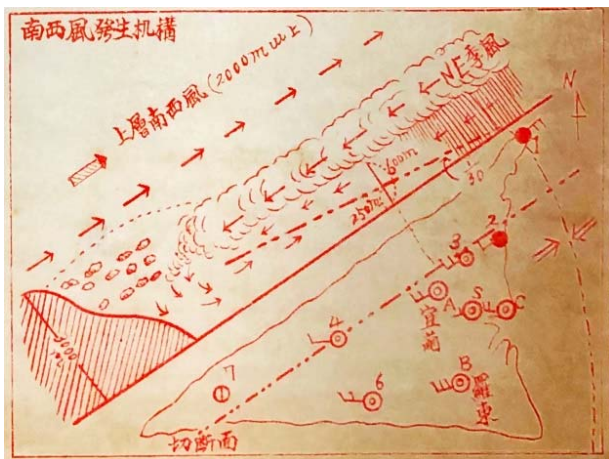 南西風發生机構
上層南西風(2000m以上)
NE季風
N
600m
250m
1/30
1
2
3
宜蘭
A
S
C
4
B
羅東
6
7
3000m
切断面